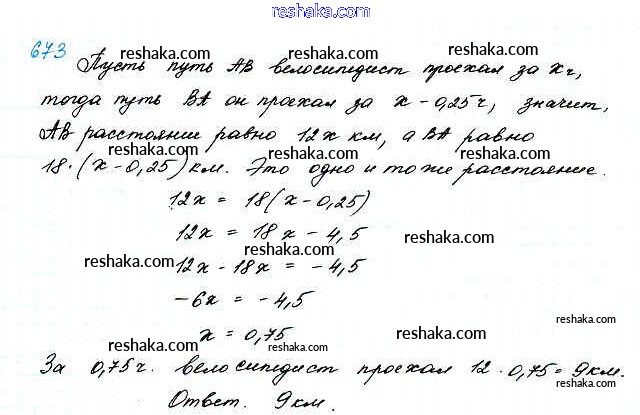 reshaka.com
673
reshaka.com reshaka.com reshaka.com
Пусть путь AB велосипедист проехал за x ч,
тогда путь BA он проехал за x - 0,25 ч, значит,
reshaka.com reshaka.com reshaka.com
AB расстояние равно 12x км, а BA равно
reshaka.com reshaka.com
18·(x-0,25) км. Это одно и то же расстояние.
reshaka.com
12x = 18(x-0,25)
12x = 18x - 4,5
reshaka.com
reshaka.com
reshaka.com
12x - 18x = -4,5
-6x = -4,5
x = 0,75
reshaka.com
reshaka.com reshaka.com
За 0,75 ч. велосипедист проехал 12·0,75 = 9 км.
reshaka.com
Ответ. 9 км.